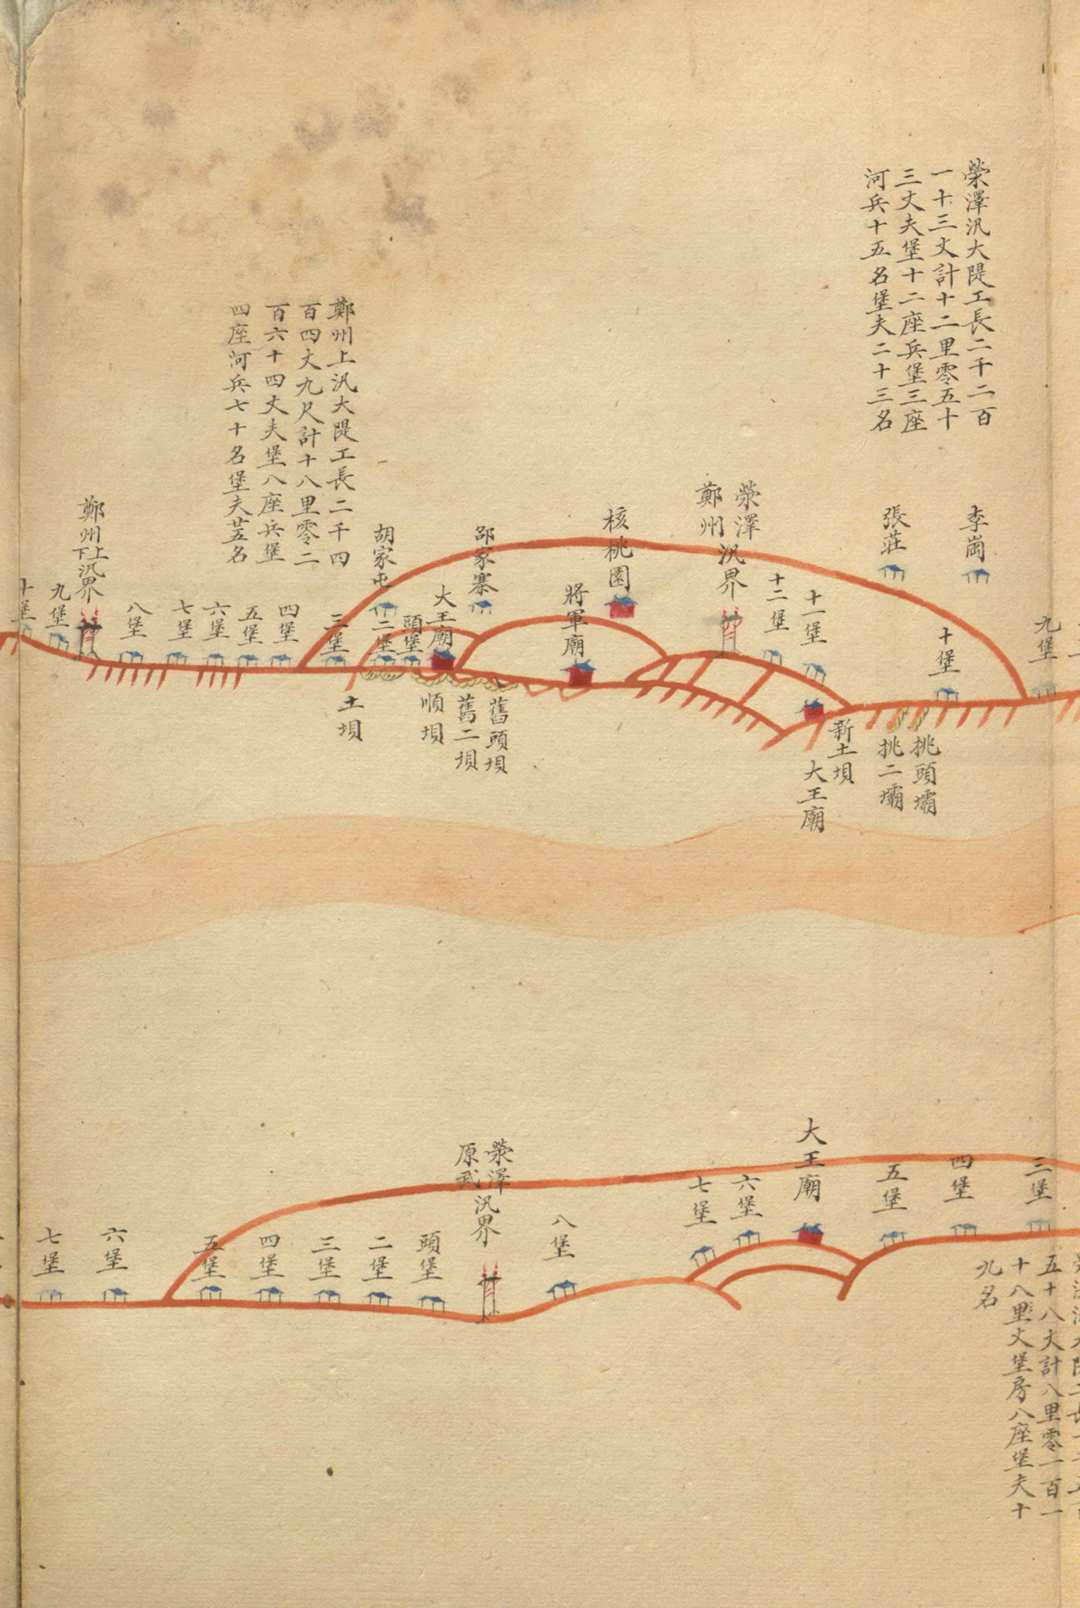 滎澤汛大隄工長二千二百
一十三丈計十二里零五十
三丈夫堡十二座兵堡三座
河兵十五名堡夫二十三名
鄭州上汛大隄工長二千四
百四丈九尺計十八里零二
百六十四丈夫堡八座兵堡
四座河兵七十名堡夫廿五名
九堡
李崗
十堡
張莊
十一堡
十二堡
滎澤
鄭州
汛界
核桃園
將軍廟
邵家寨
大王廟
胡家屯
頭堡
二堡
三堡
四堡
五堡
六堡
七堡
八堡
鄭州上下汛界
九堡
十堡
挑頭壩
挑二壩
新土垻
大王廟
舊頭垻
舊二垻
順垻
土垻
三堡
四堡
五堡
大王廟
六堡
七堡
八堡
滎澤
原武
汛界
頭堡
二堡
三堡
四堡
五堡
六堡
七堡
五十八丈計八里零一百一
十八里丈堡房八座堡夫十
九名